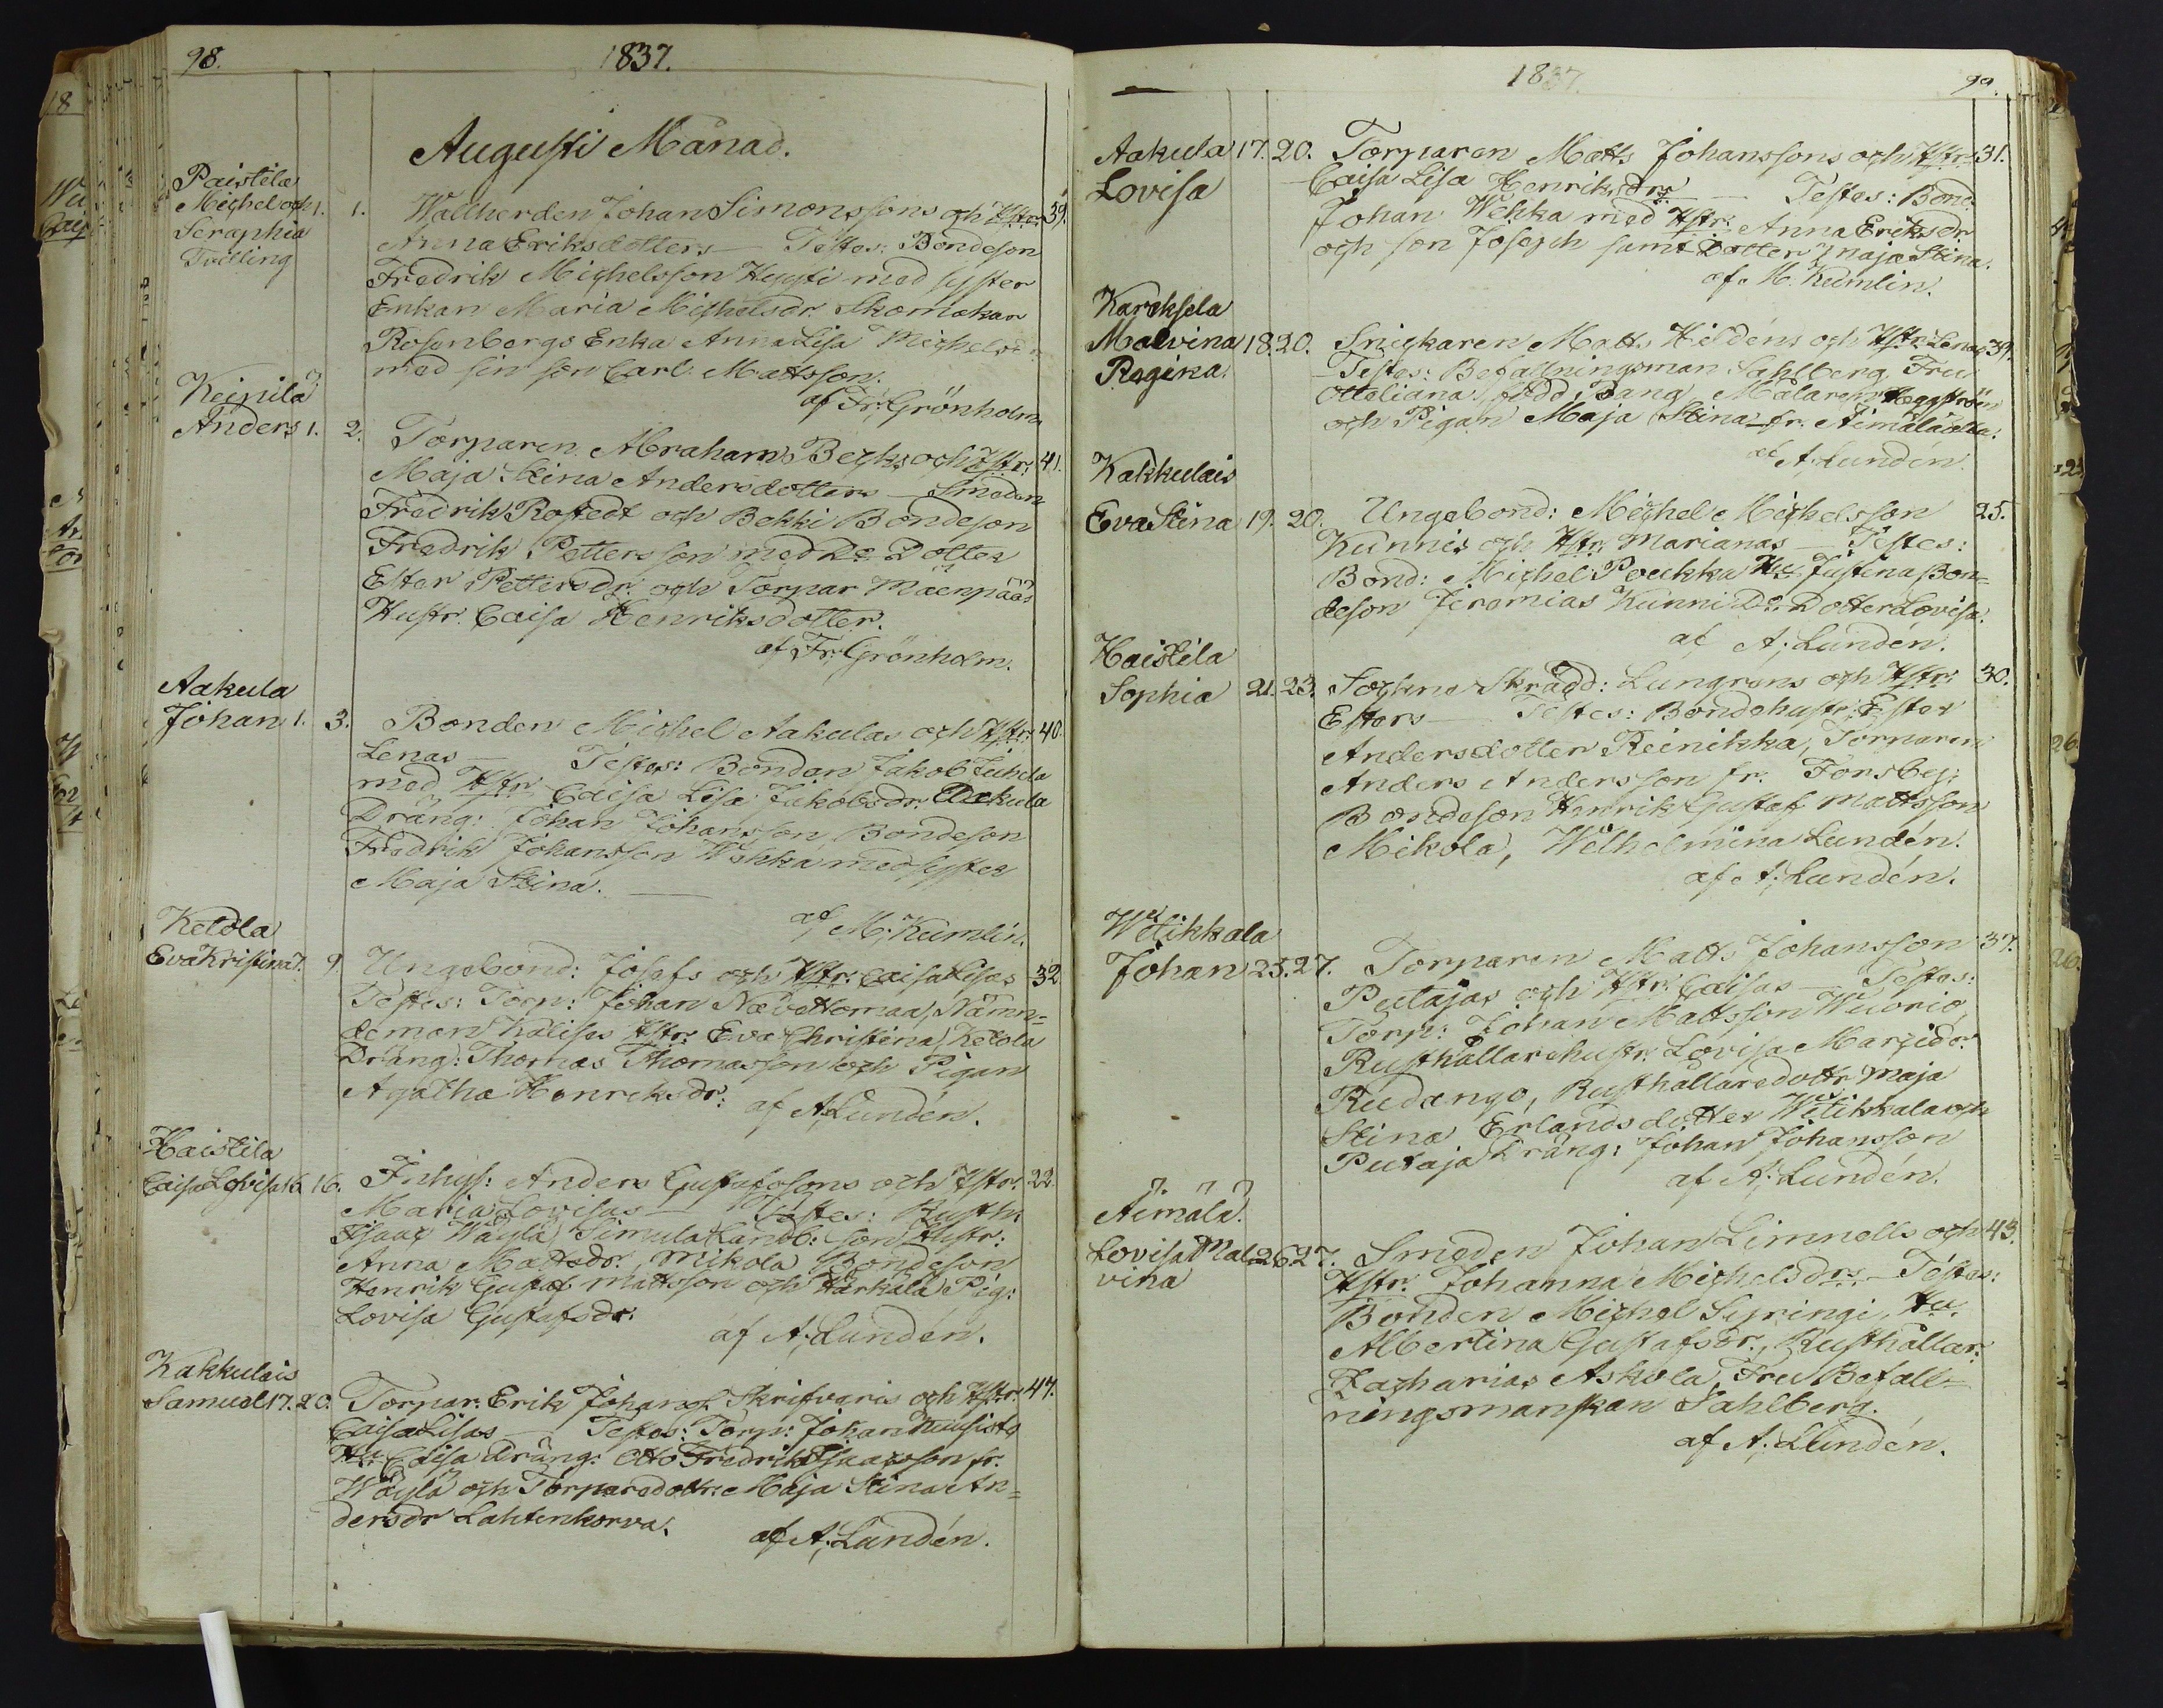 98.
1837.
Augusti Månad.
Paistila
Michel och 1. 1. Wallherden Johan Simonssons och Hstr: 39.
Seraphia Anna Eriksdotters — Testes: Bondeson
Tvilling
Fredrik Michelsson Hyysti med syster
Enkan Maria Michelsdr. Skomakar
Rosenbergs Enka Anna Lisa Michelsdr
med sin son Carl Mattsson.
af Fr: Grönholm
Keinilä
Anders 1. 2. Torparen Abraham Becks och Hstr: 41.
Maja Stina Andersdotters — Smeden
Fredrik Rostedt och Bekki Bondeson
Fredrik Pettersson med Do Dotter
Ester Pettersdr. och Torpar Mäenpääs
Hustr. Caisa Henriksdotter.
af Fr: Grönholm.
Aakula
Johan 1. 3. Bonden Michel Aakulas och Hstr: 40.
Lenas — Testes: Bonden Jakob Juhela
med Hstr Caisa Lisa Jakobsdr. Aakula
Dräng: Johan Johansson, Bondeson
Fredrik Johansson Wehka med syster
Maja Stina. —
af M: Kumlin.
Ketola
Eva Kristina 7. 9. Ungebond: Josefs och Hstr: Caisa Lisas 32.
Testes: Torp: Johan Nävettomaa, Nämn=
deman Kalises Hstr: Eva Christina, Ketola
Dräng: Thomas Thomasson och Pigan
Agatha Henriksdr: af A: Lundén.
Haistila
Caisa Lovisa 16. 16. Inhys: Anders Gustafssons och Hstr. 22.
Maria Lovisas — Testes: Rusth:
Isaac Wäylä, Simula Landb: son Hustr:
Anna Mattsdr. Mikola Bondeson
Henrik Gustaf Mattsson och Härkälä Pig:
Lovisa Gustafsdr:
af A: Lundén.
Kakkulais
Samuel 17. 20. Torpar. Erik Johans. Skrifvaris och Hstr: 47.
Caisa Lisas — Testes: Torp: Johan Nuusista
Hu: Caisa Dräng: Otto Fredrik Isaacsson fr.
Wäylä och Torparedottr: Maja Stina An=
dersdr Lahtenkorva.
af A: Lundén.
1837.
99.
Aakula 17. 20. Torparen Matts Johanssons och Hstr: 31.
Lovisa Caisa Lisa Henriksdrs — Testes: Bond.
Johan Wehka med Hstr: Anna Eriksdr
och son Joseph samt Dotter Maja Stina.
af M. Kumlin.
Kareksela
Malvina 18. 20. Snickaren Matts Hildéns och Hstr: Lenas 39.
Regina. Testes: Befallningsman Sahlberg, Fru
Otteliana född Bang, Målaren Heggström
och Pigan Maja Stina fr. Äimäläalta.
af A: Lundén.
Kakkulais
Eva Stina 19. 20. Ungebond: Michel Michelsson 25.
Kunnis och Hstr: Marianas — Testes:
Bond: Michel Poukka Hu Justina Bon=
deson Jeremias Kunni Do Dotter Lovisa.
af A: Lundén.
Haistila
Sophia 21. 23. Sockne Skrädd: Lungrens och Hstr: 30.
Esters — Testes: Bondehustr: Ester
Andersdotter Reinikka, Torparen
Anders Andersson fr. Forsby;
Bondeson Henrik Gustaf Mattsson
Mikola, Wilhelmina Lundén.
af A: Lundén.
Witikkala
Johan 25. 27. Torparen Matts Johansson 37.
Putajas och Hstr: Caisas — Testes:
Torp: Johan Mattsson Wuorio,
Rusthållarehustr: Lovisa Marcidr.
Rudango, Rusthållaredottr: Maja
Stina Erlandsdotter Witikkala och
Putaja Dräng: Johan Johansson
af A: Lundén.
Äimälä.
Lovisa Mal= 26. 27. Smeden Johan Limnells och 43.
vina Hstr. Johanna Michelsdrs — Testes:
Bonden Michel Syringi, Hu
Albertina Gustafsdr., Rusthållar:
Zacharias Askola, Fru Befall=
ningsmanskan Sahlberg.
af A: Lundén.